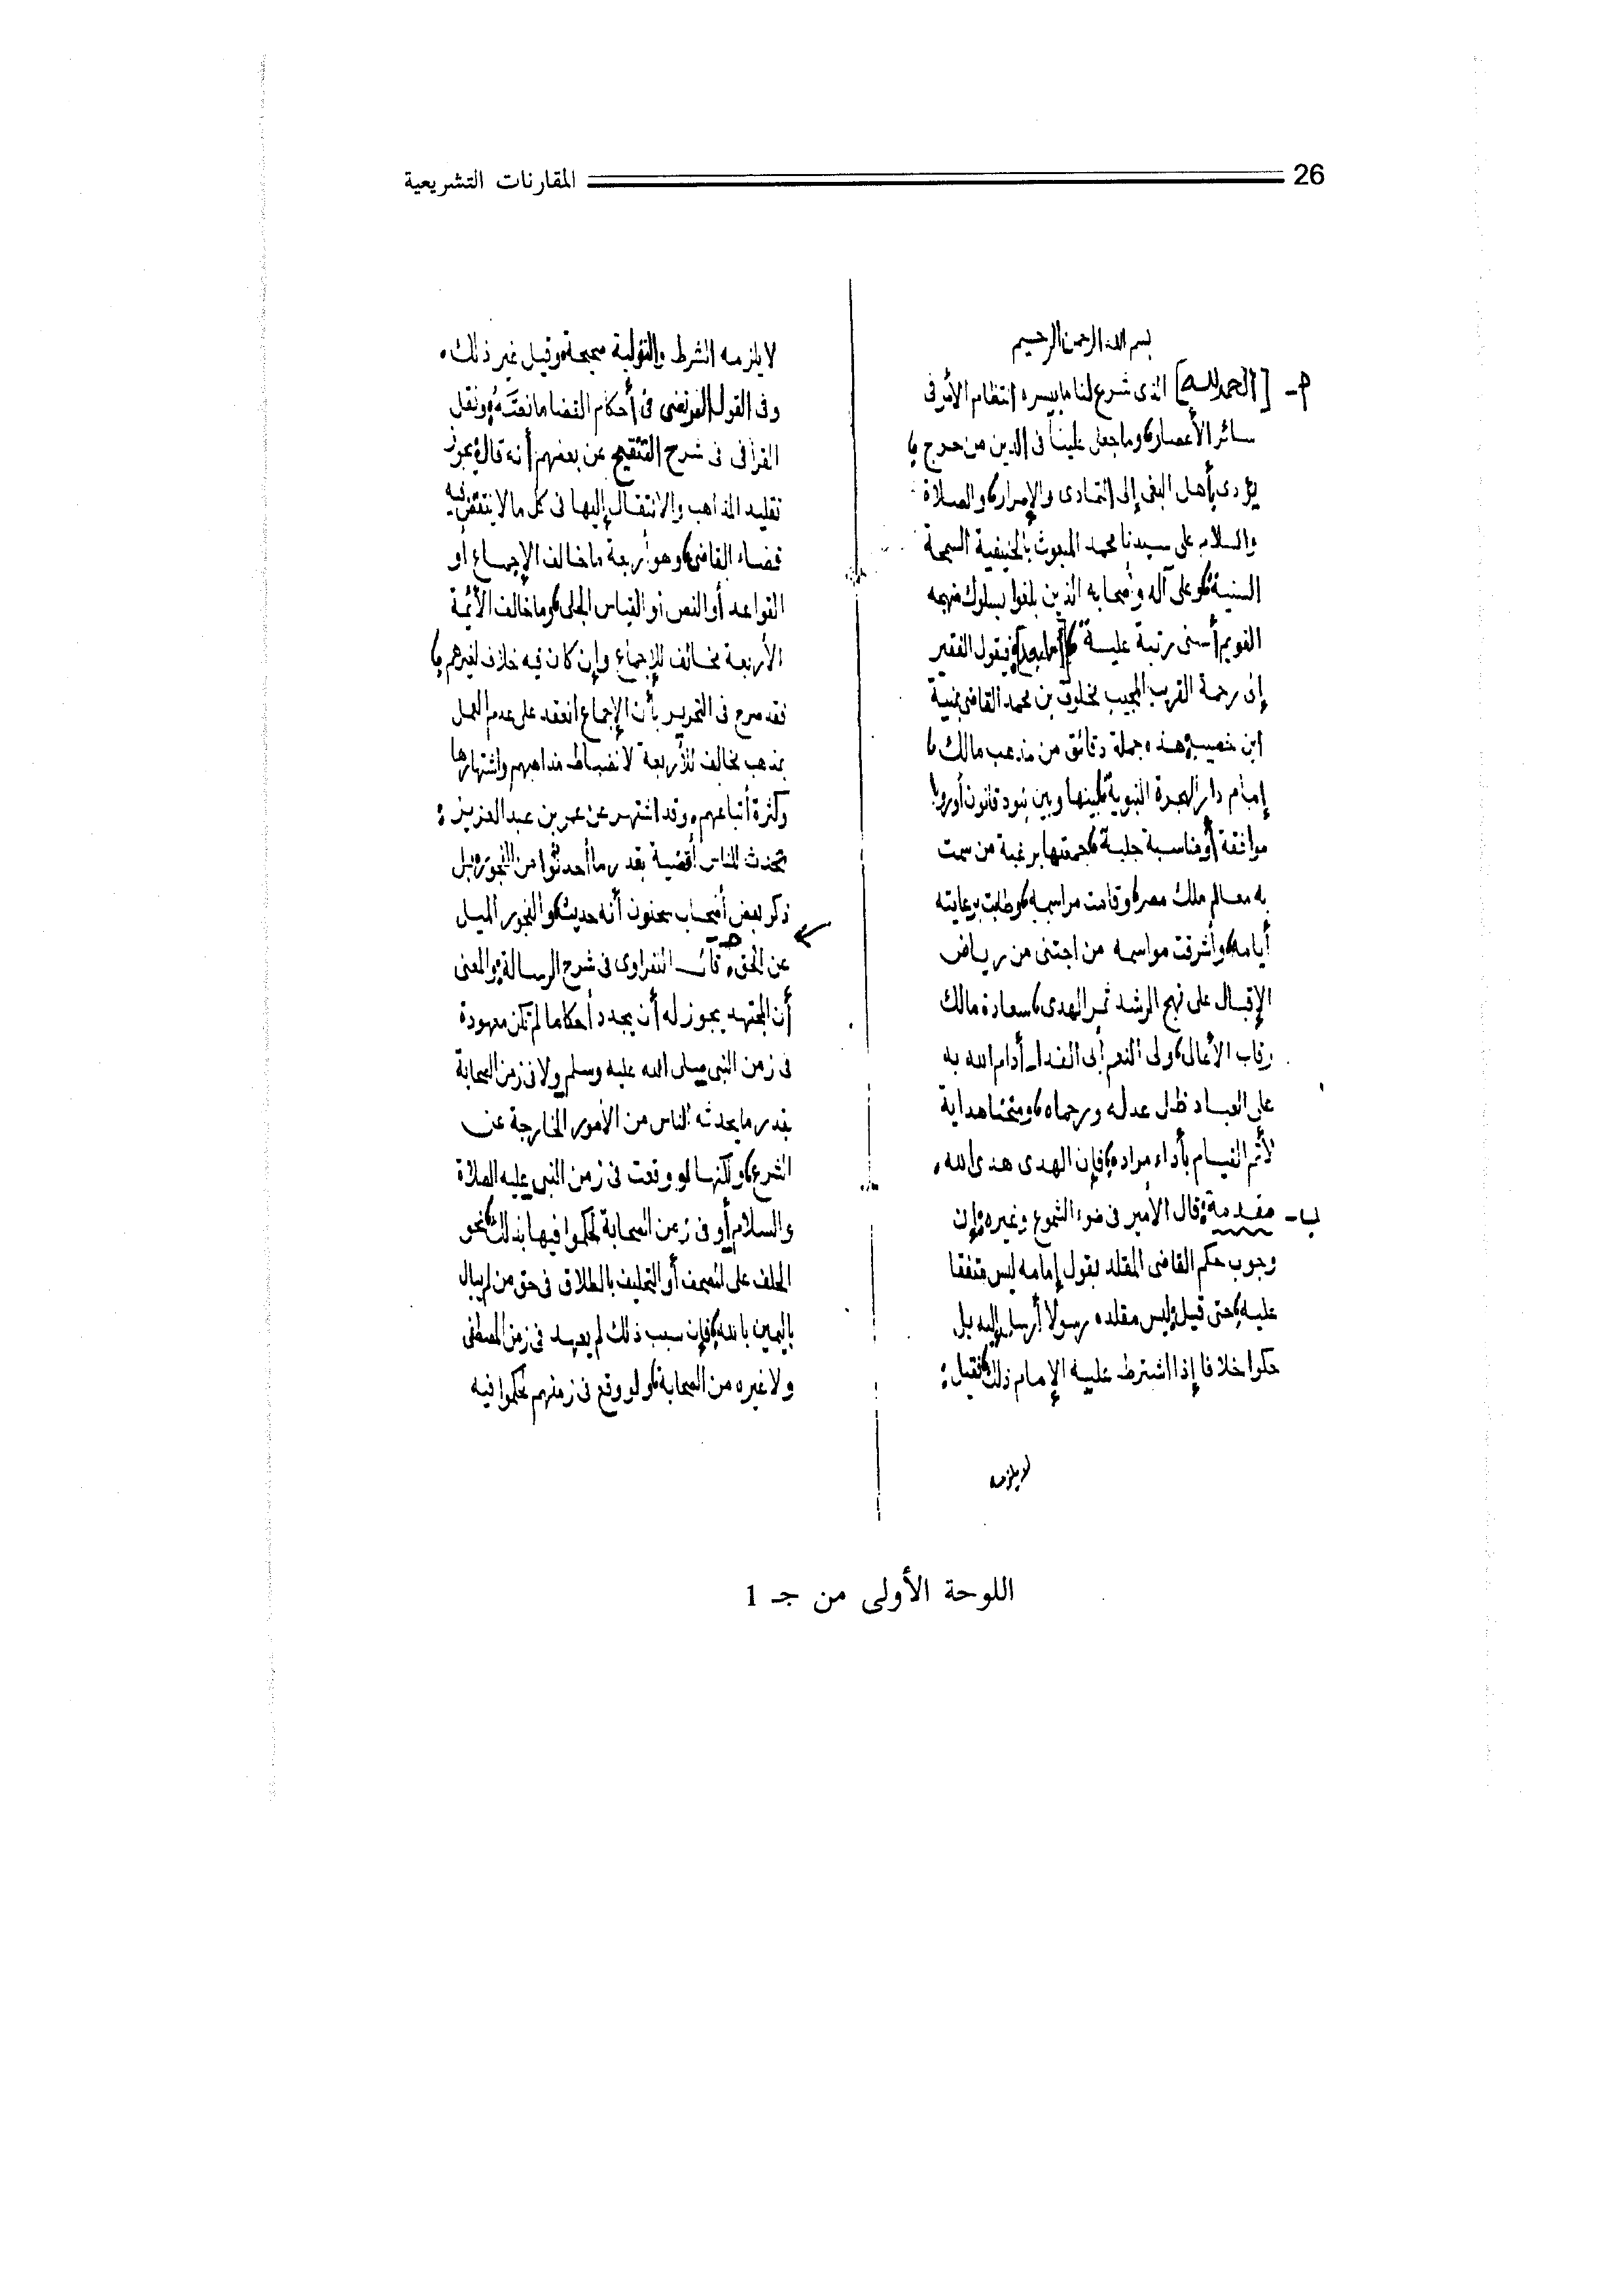 26 المقارنات التشريعية
بسم الله الرحمن الرحيم
م - [الحمد لله] الذى شرع لنا ما بيسره انتظام الأمر فى
سائر الأعصار، وما جعل علينا فى الدين من حرج،
يؤدى بأهل البغى إلى التمادى والإصرار، والصلاة
والسلام على سيدنا محمد المبعوث بالحنيفية السمحة
السنية، وعلى آله وأصحابه الذين بلغوا بسلوك منهجه
القويم أسنى رتبة علية، [أما بعد] فيقول الفقير
إلى رحمة القريب المجيب مخلوف بن محمد القاضى بمنية
ابن خصيب: هذه جملة دقائق من مذهب مالك،
إمام دار الهجرة النبوية، بينها وبين بنود قانون أوروبا
موافقة أو مناسبة جلية، جمعتها برغبة من سمت
به معالم ملك مصر، وقامت مراسمه، وطابت برعايته
أيامه، وأشرقت مواسمه من اجتنى من رياض
الإقبال على نهج الرشد ثمر الهدى، سعادة مالك
رقاب الأعالى، ولى النعم أبى الفدا - أدام الله به
على العباد ظل عدله ورحماه، ومنحنا هداية
لأتم القيام بأداء مراده، فإن الهدى هدى الله.
ب - مقدمة: قال الأمير فى ضوء الشموع وغيره: إن
وجوب حكم القاضى المقلد بقول إمامه ليس متفقا
عليه، حتى قيل: ليس مقلده رسولا أرسل إليه بل
حكوا خلافا إذا اشترط عليه الإمام ذلك، فقيل:
لا يلزمه
لا يلزمه الشرط والتولية صحيحة، وقيل غير ذلك.
وفى القول المرتضى فى أحكام القضا ما نصّه: ونقل
القرافى فى شرح التنقيح عن بعضهم أنه قال: يجوز
تقليد المذاهب والانتقال إليها فى كل ما لا ينتقض فيه
قضاء القاضى، وهو أربعة ما خالف الإجماع أو
القواعد أو النص أو القياس الجلى، وما خالف الأئمة
الأربعة مخالف للإجماع وإن كان فيه خلاف لغيرهم،
فقد صرح فى التحرير بأن الإجماع انعقد على عدم العمل
بمذهب مخالف للأربعة لانضباط مذاهبهم واشتهارها
وكثرة أتباعهم. وقد اشتهر عن عمر بن عبد العزيز:
تحدث للناس أقضية بقدر ما أحدثوا من الفجور، بل
ذكر بعض أصحاب سحنون أنه حديث، والفجور الميل
عن الحق. قال النفراوى فى شرح الرسالة: والمعنى
أن المجتهد يجوز له أن يجدد أحكاما لم تكن معهودة
فى زمن النبى صلى الله عليه وسلم ولا فى زمن الصحابة
بقدر ما يحدثه الناس من الأمور الخارجة عن
الشرع، ولكنها لو وقعت فى زمن النبى عليه الصلاة
والسلام أو فى زمن الصحابة لحكموا فيها بذلك، نحو
الحلف على المصحف أو التحليف بالطلاق فى حق من لم يبال
باليمين بالله، فإن سبب ذلك لم يعهد فى زمن المصطفى
ولا غيره من الصحابة، ولو وقع فى زمنهم لحكموا فيه
اللوحة الأولى من جـ 1